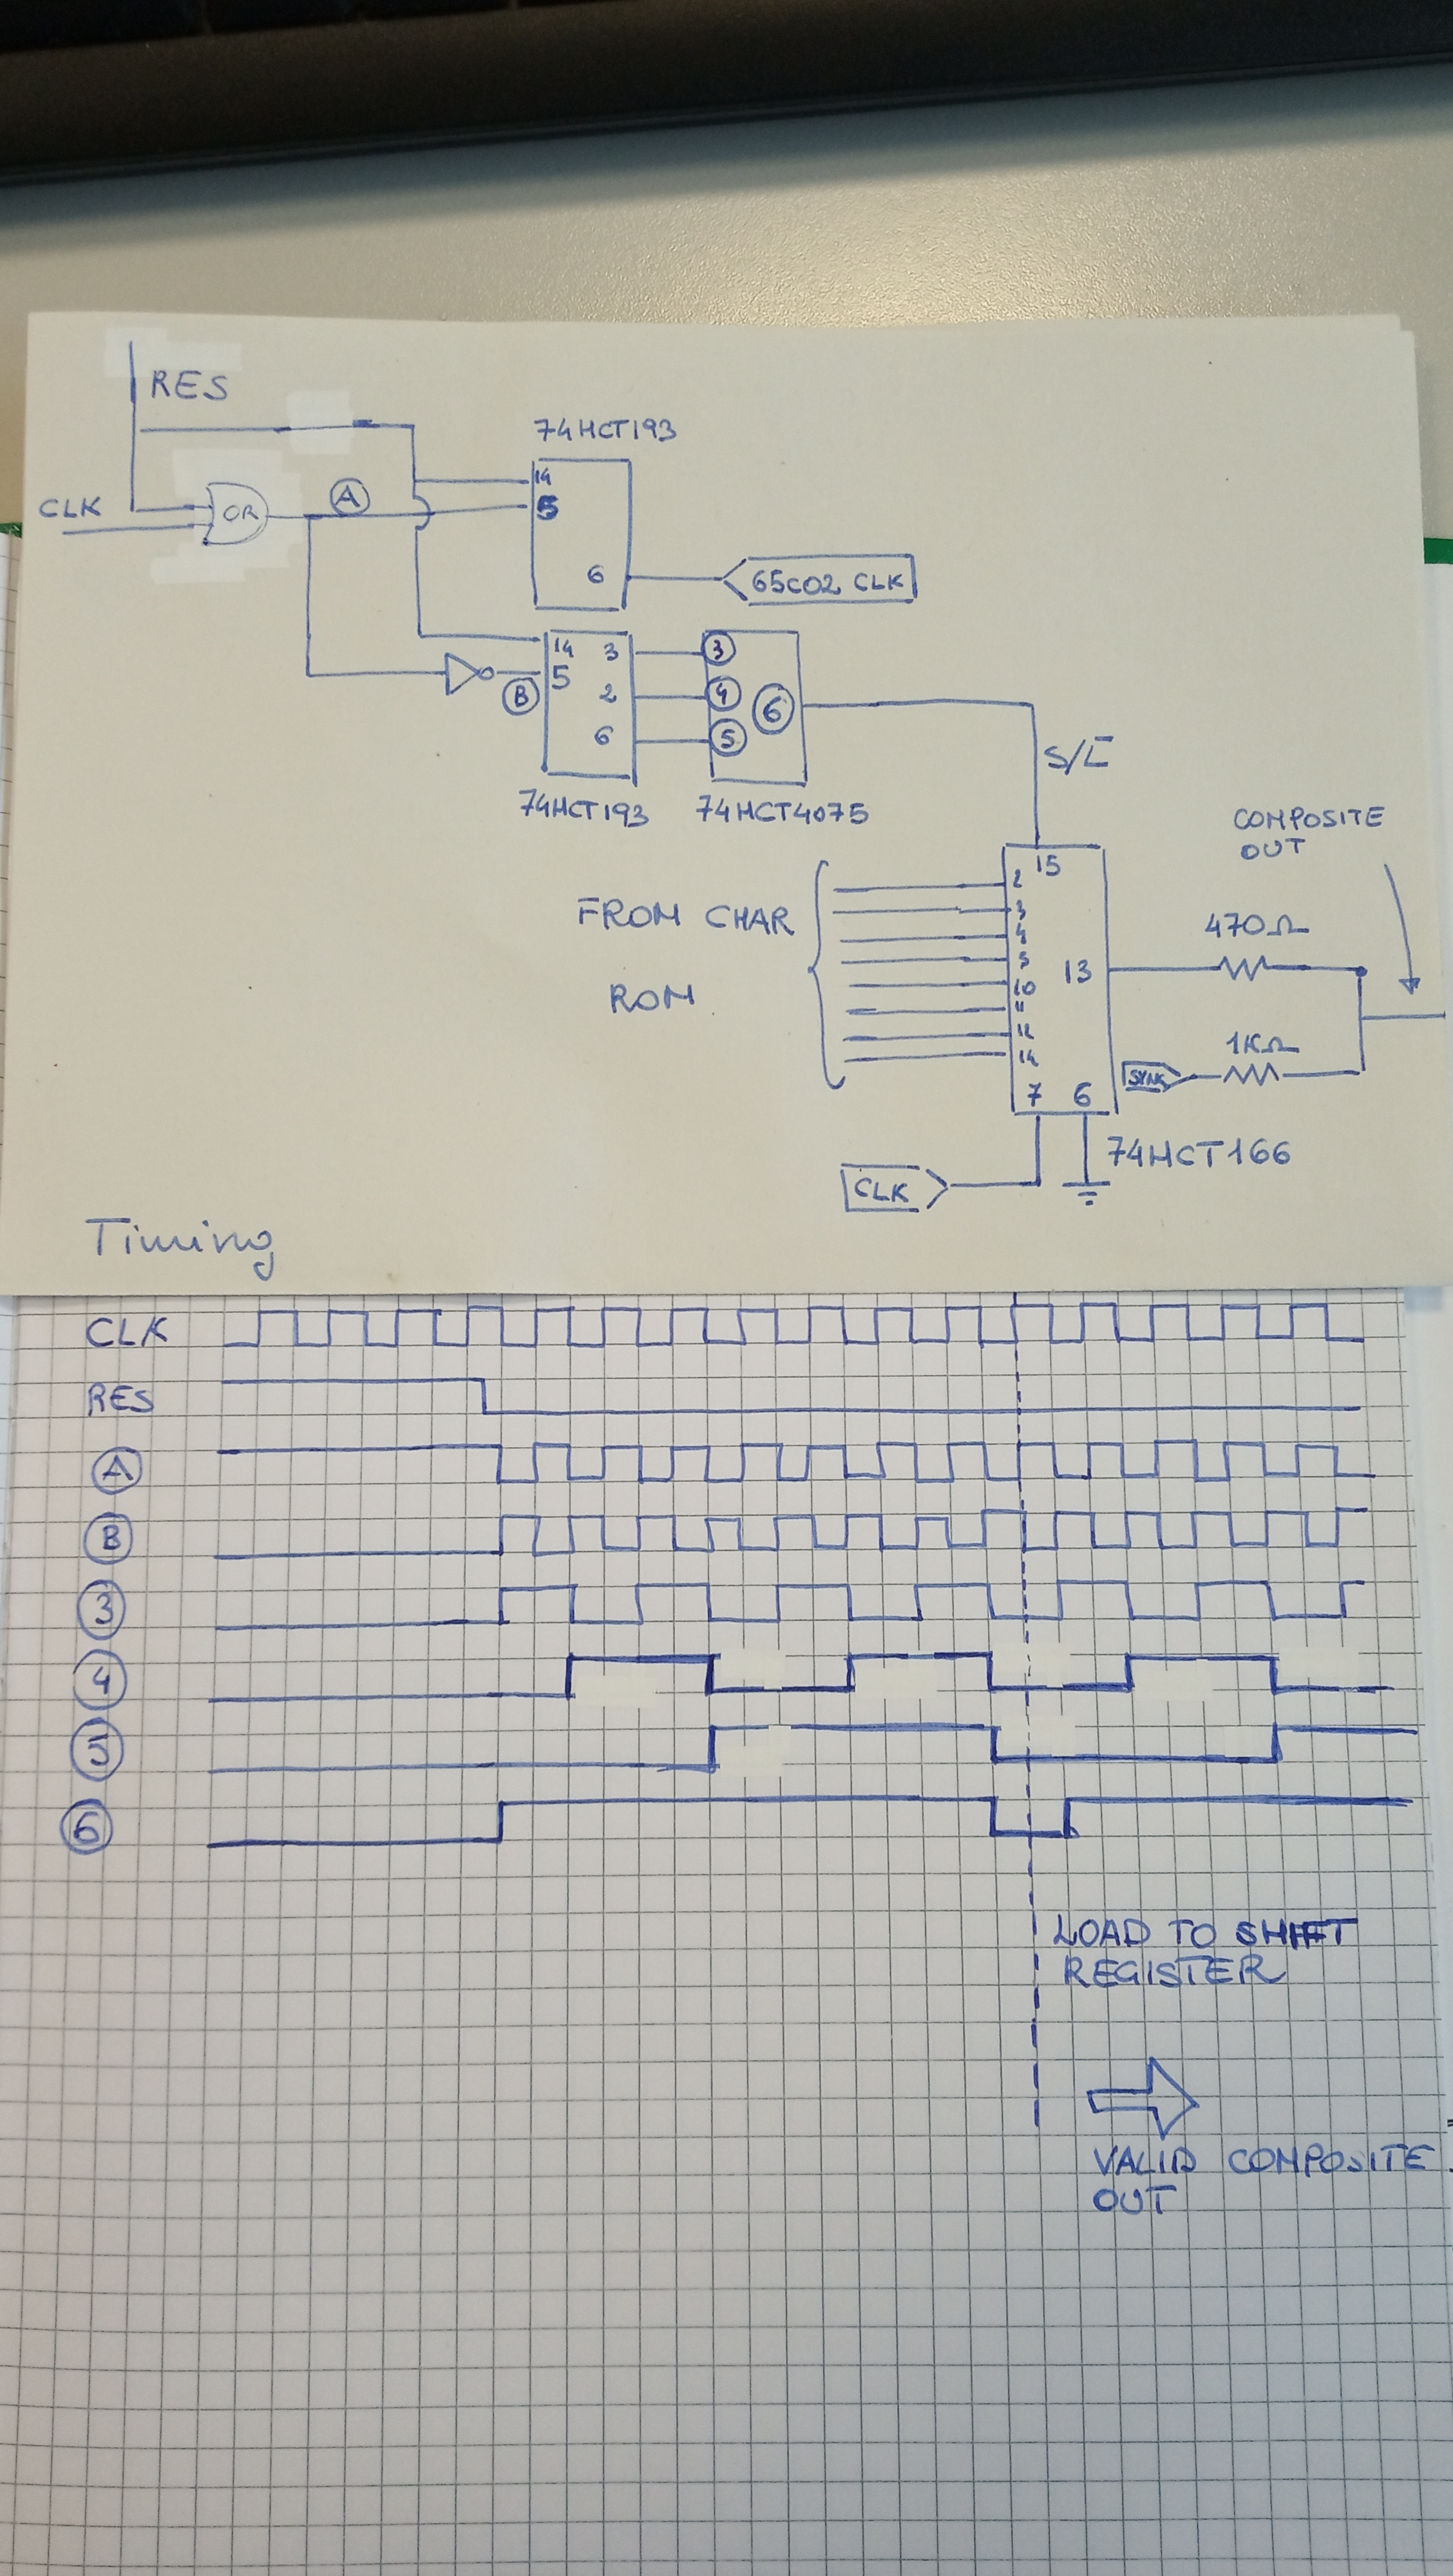 RES
74HCT193
CLK
OR
A
14
5
6
65C02 CLK
14 3
5
B
2
6
3
4
5
6
74HCT193
74HCT4075
S/L̅
COMPOSITE
OUT
FROM CHAR
ROM
15
2
3
4
5
10
11
12
14
13
7 6
470Ω
1KΩ
SYNC
74HCT166
CLK
Timing
CLK
RES
A
B
3
4
5
6
LOAD TO SHIFT
REGISTER
VALID COMPOSITE
OUT